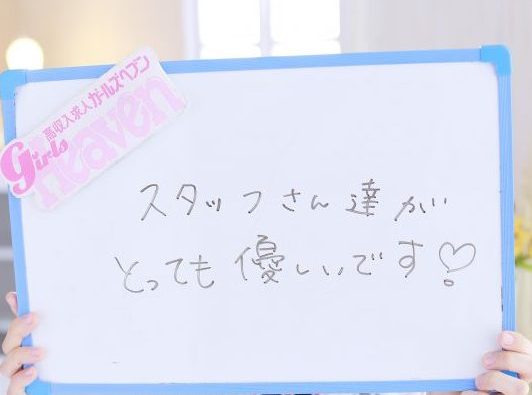 高収入求人ガールズヘブン
Girls
Heaven
スタッフさん達が
とっても優しいです♡